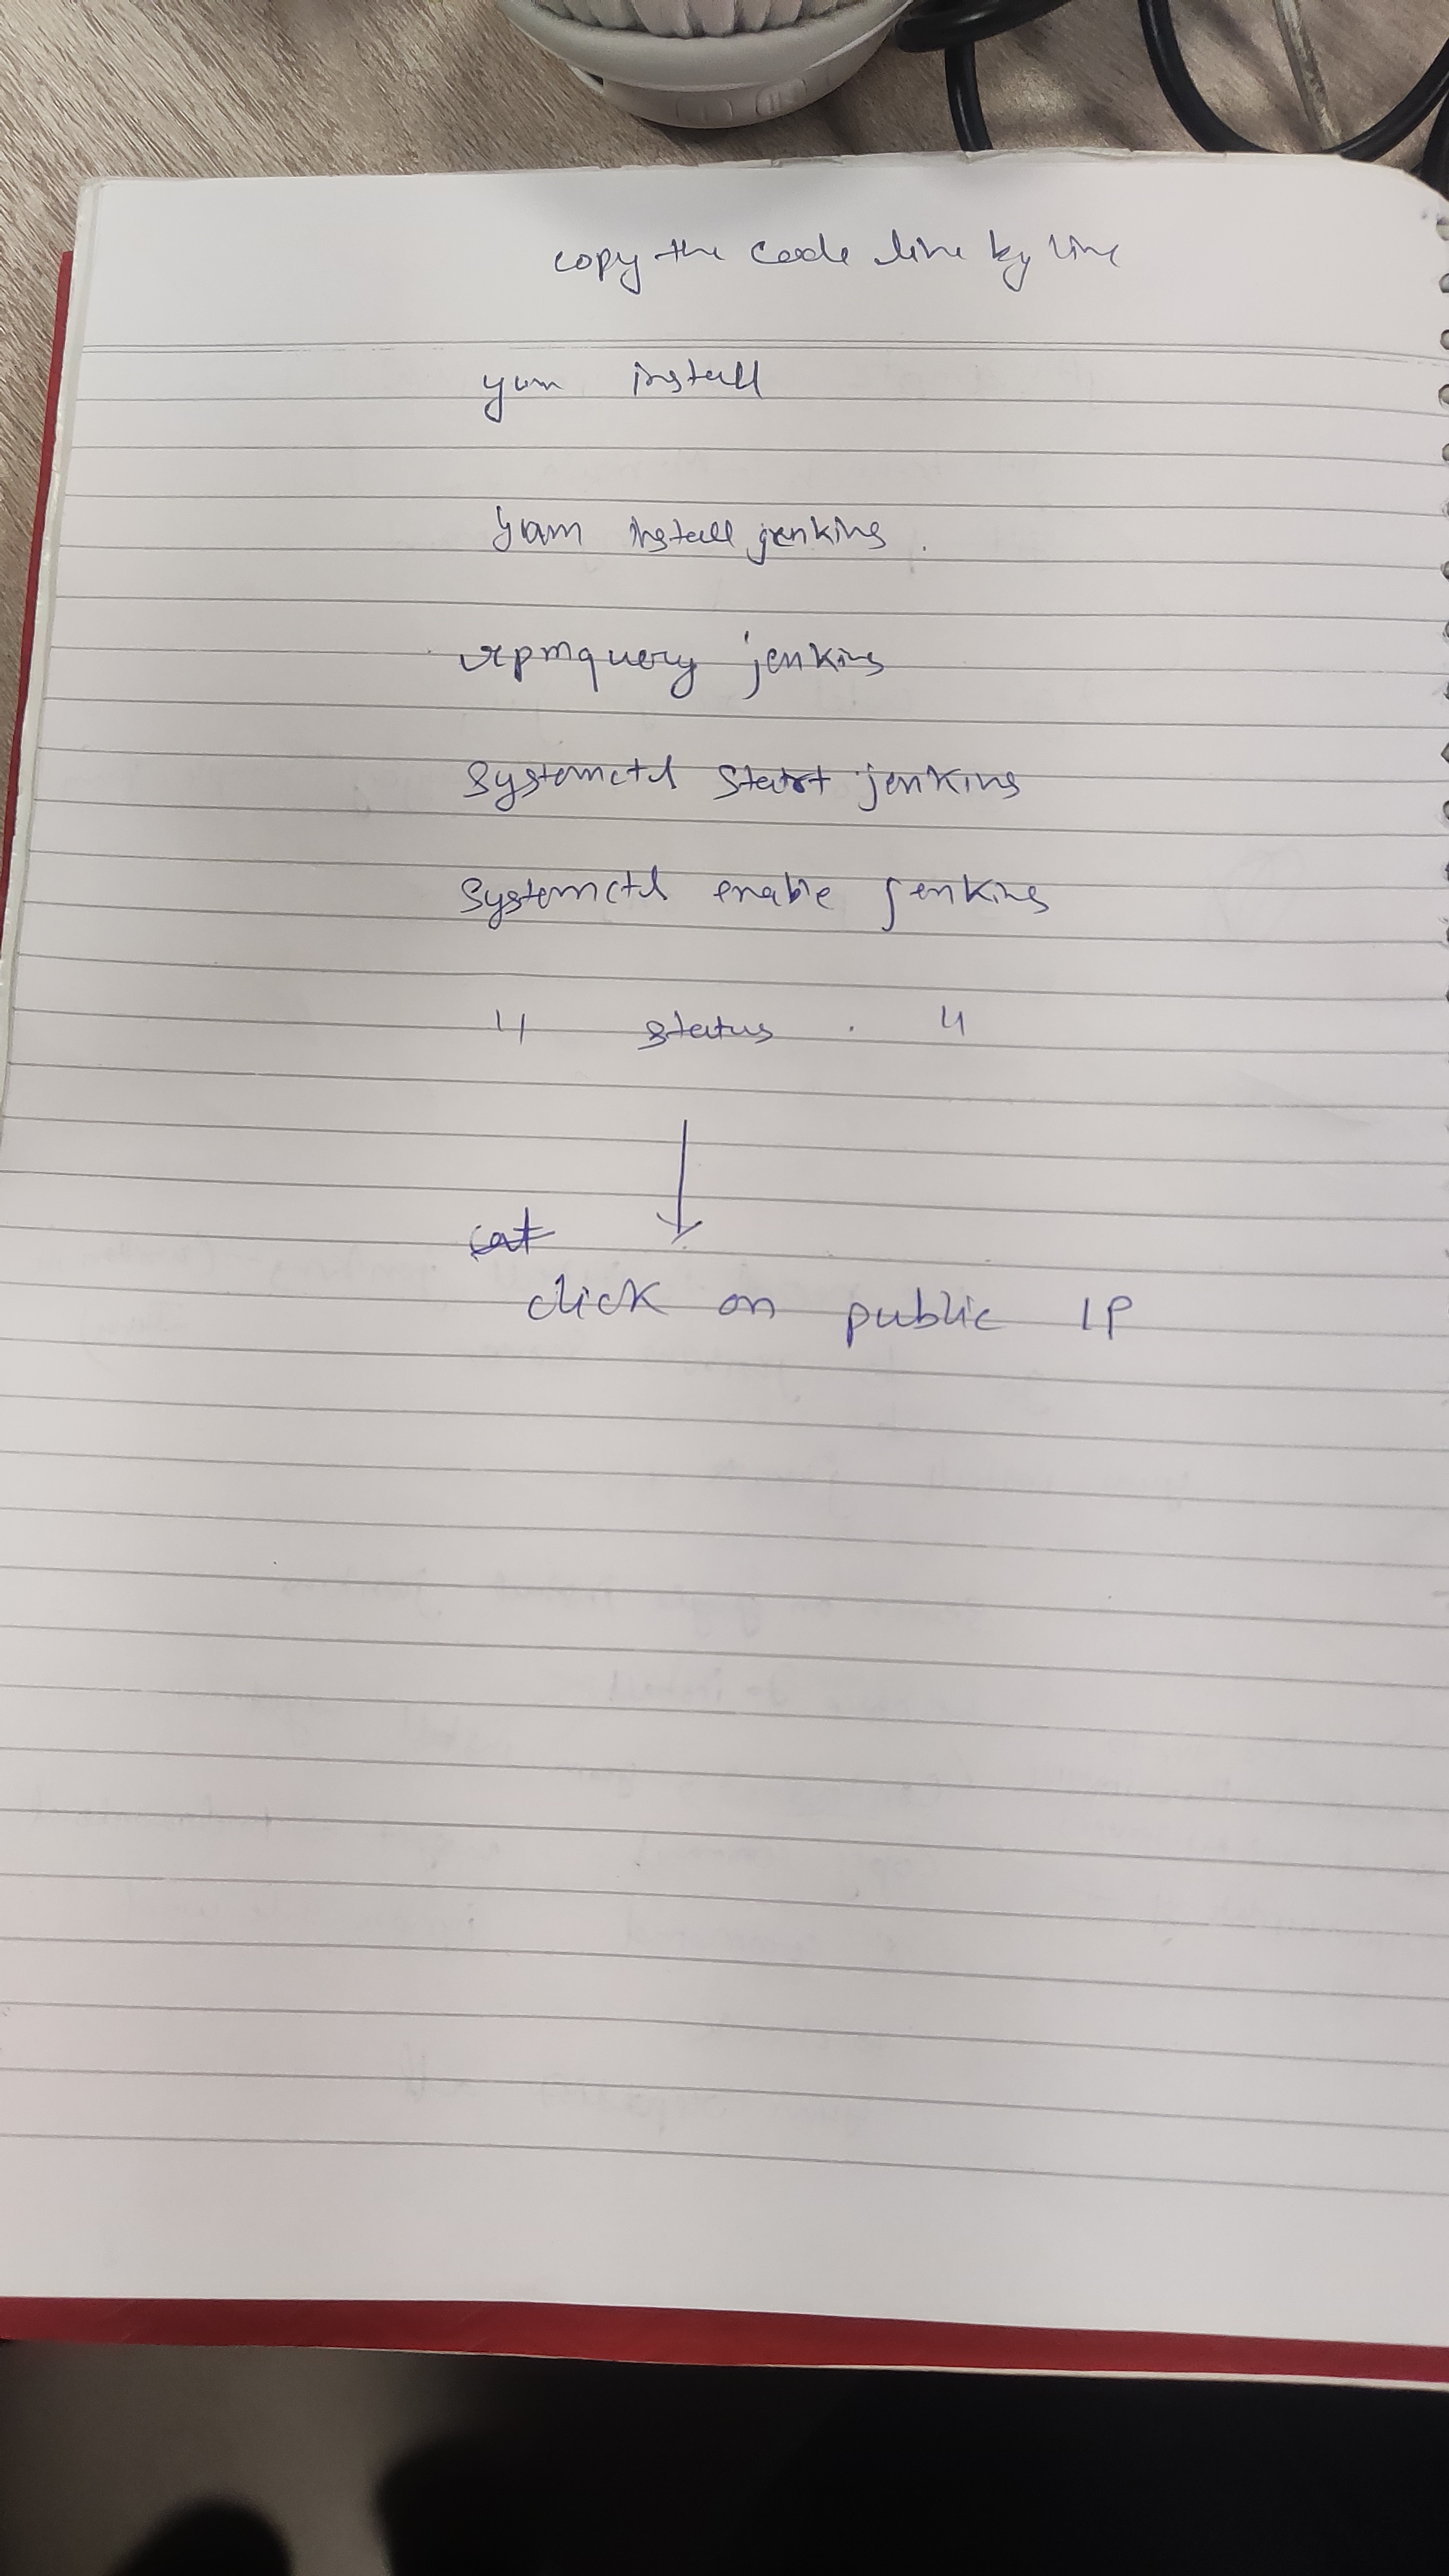 copy the code line by line
yum install
yum install jenkins.
rpmquery jenkins
systemctl start jenkins
systemctl enable jenkins
〃 status . 〃
cat
click on public IP